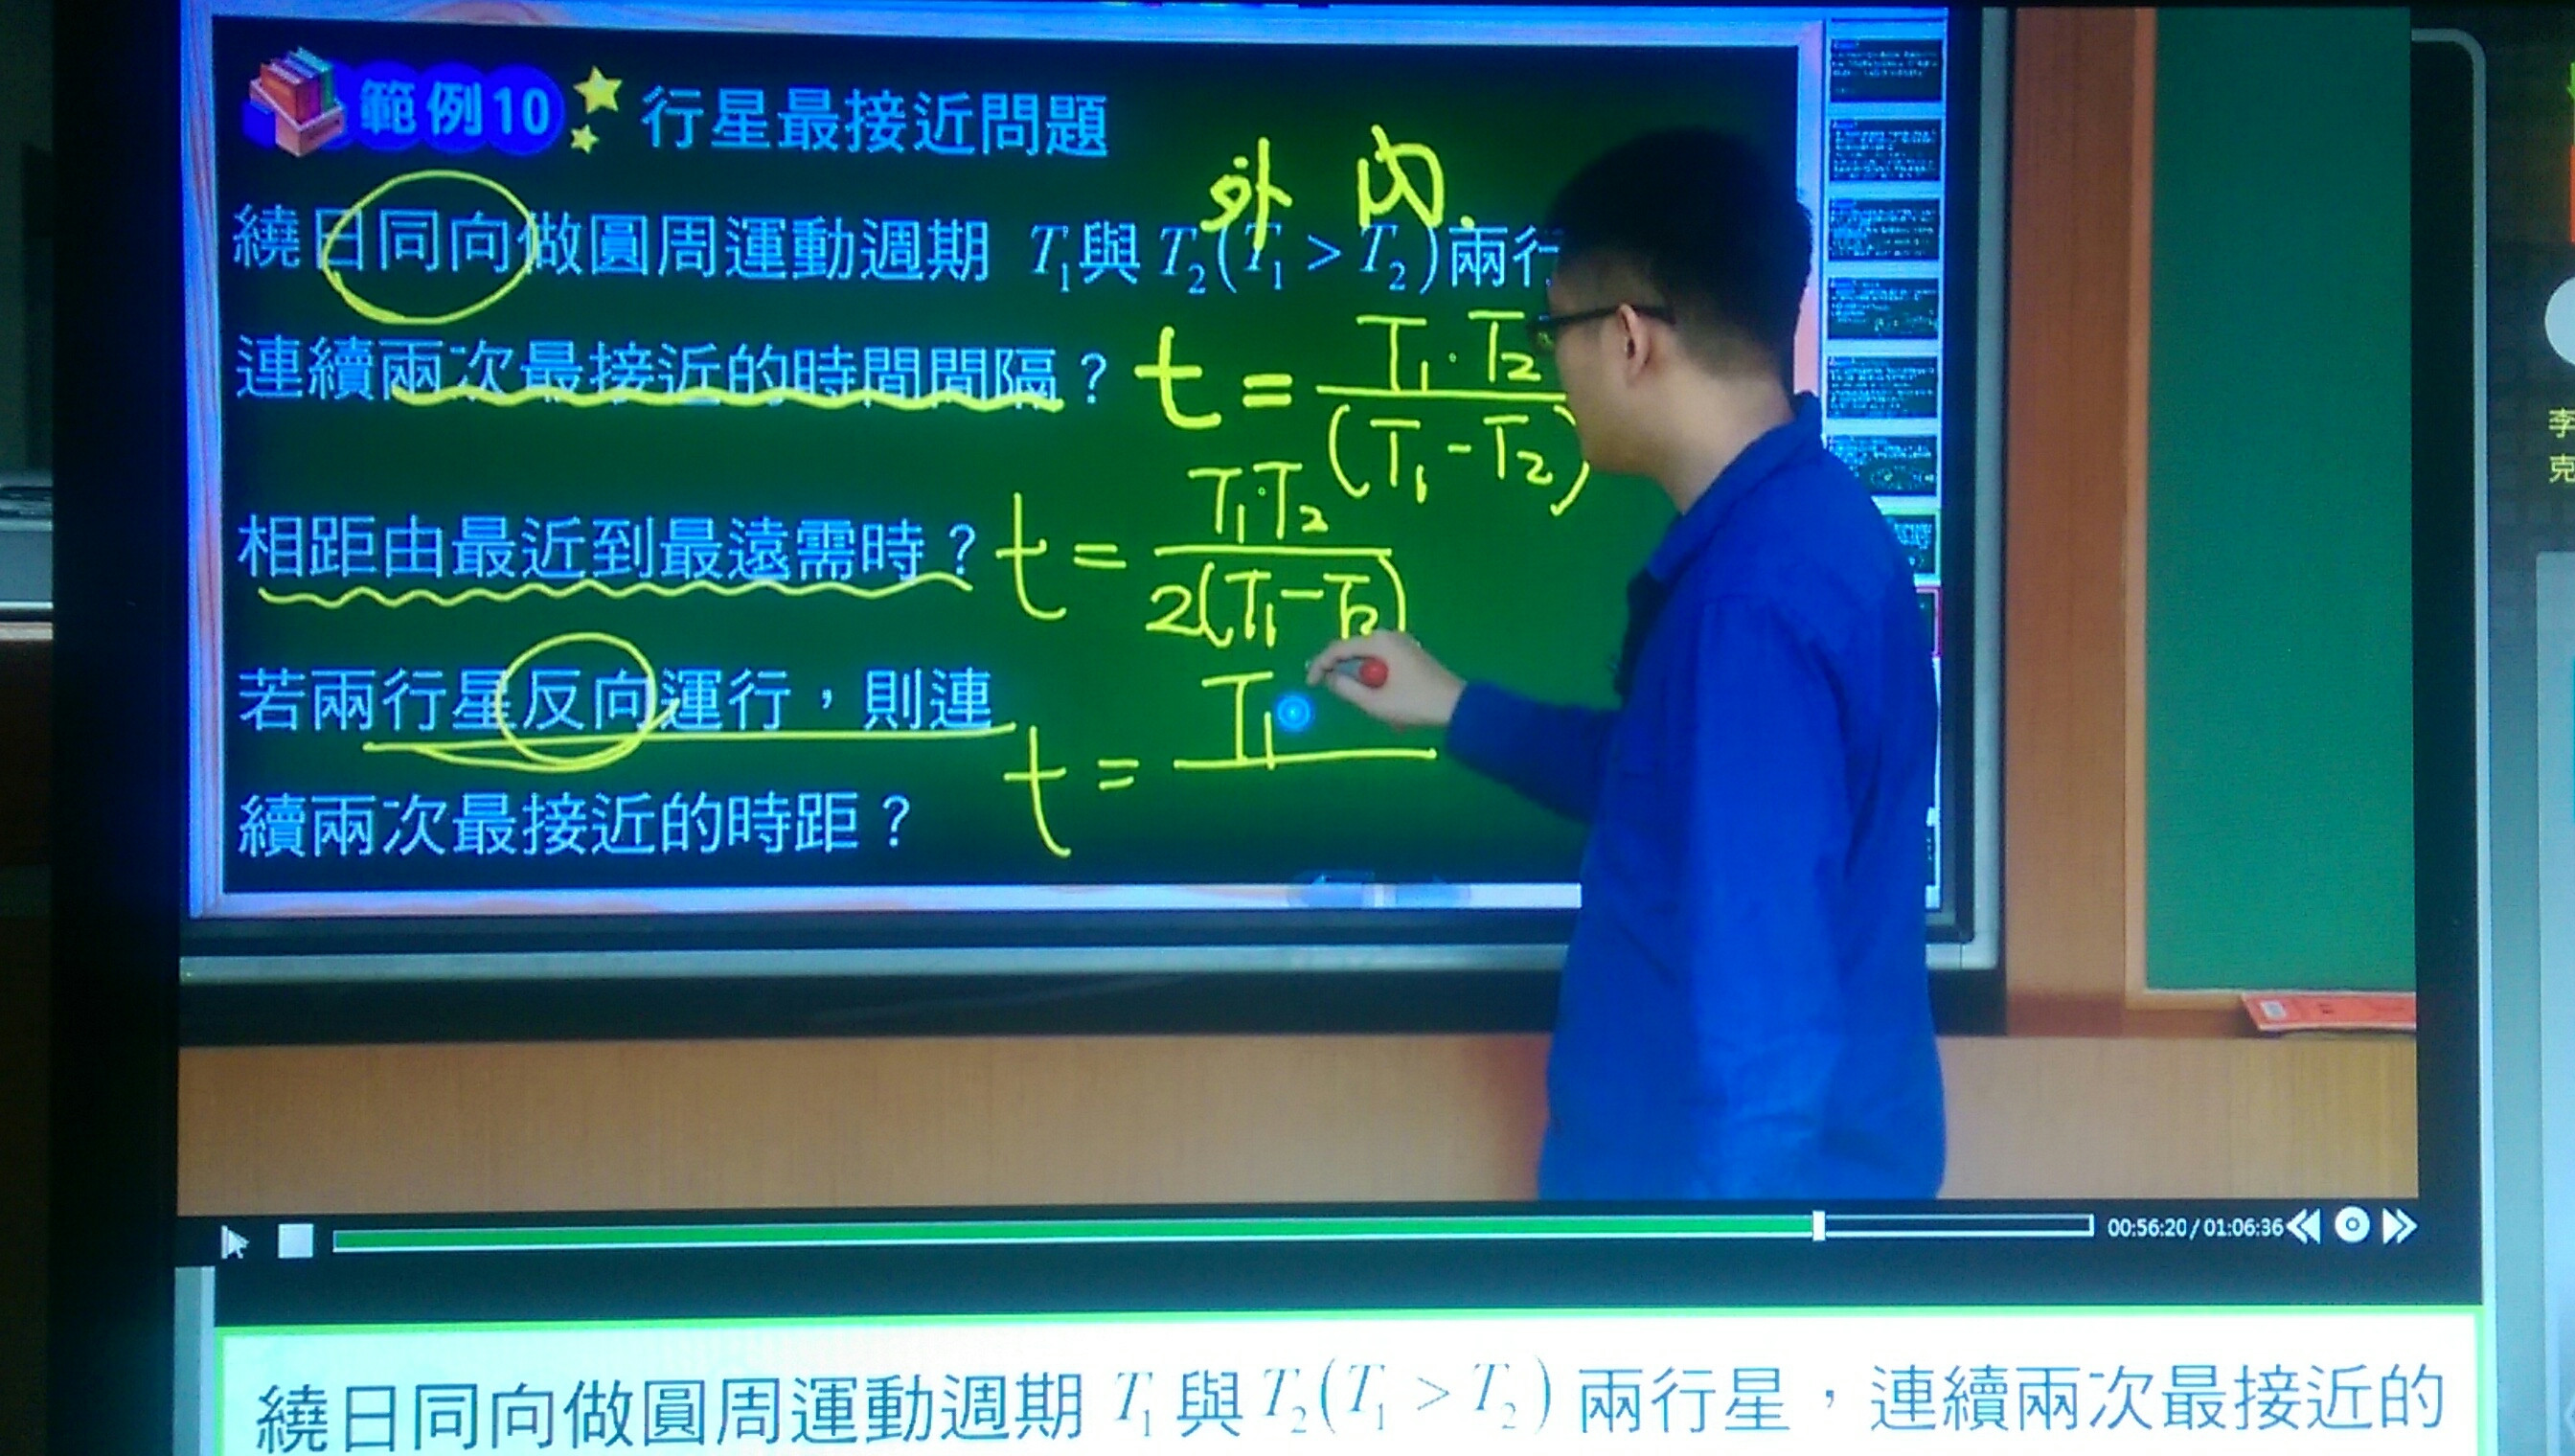 範例10 行星最接近問題
外 內
繞日同向做圓周運動週期 T₁與T₂(T₁ > T₂)兩行
連續兩次最接近的時間間隔？ t = T₁·T₂ / (T₁-T₂)
相距由最近到最遠需時？ t = T₁·T₂ / 2(T₁-T₂)
若兩行星反向運行，則連
續兩次最接近的時距？ t = T₁
李
克
00:56:20 / 01:06:36
繞日同向做圓周運動週期 T₁ 與 T₂(T₁ > T₂) 兩行星，連續兩次最接近的